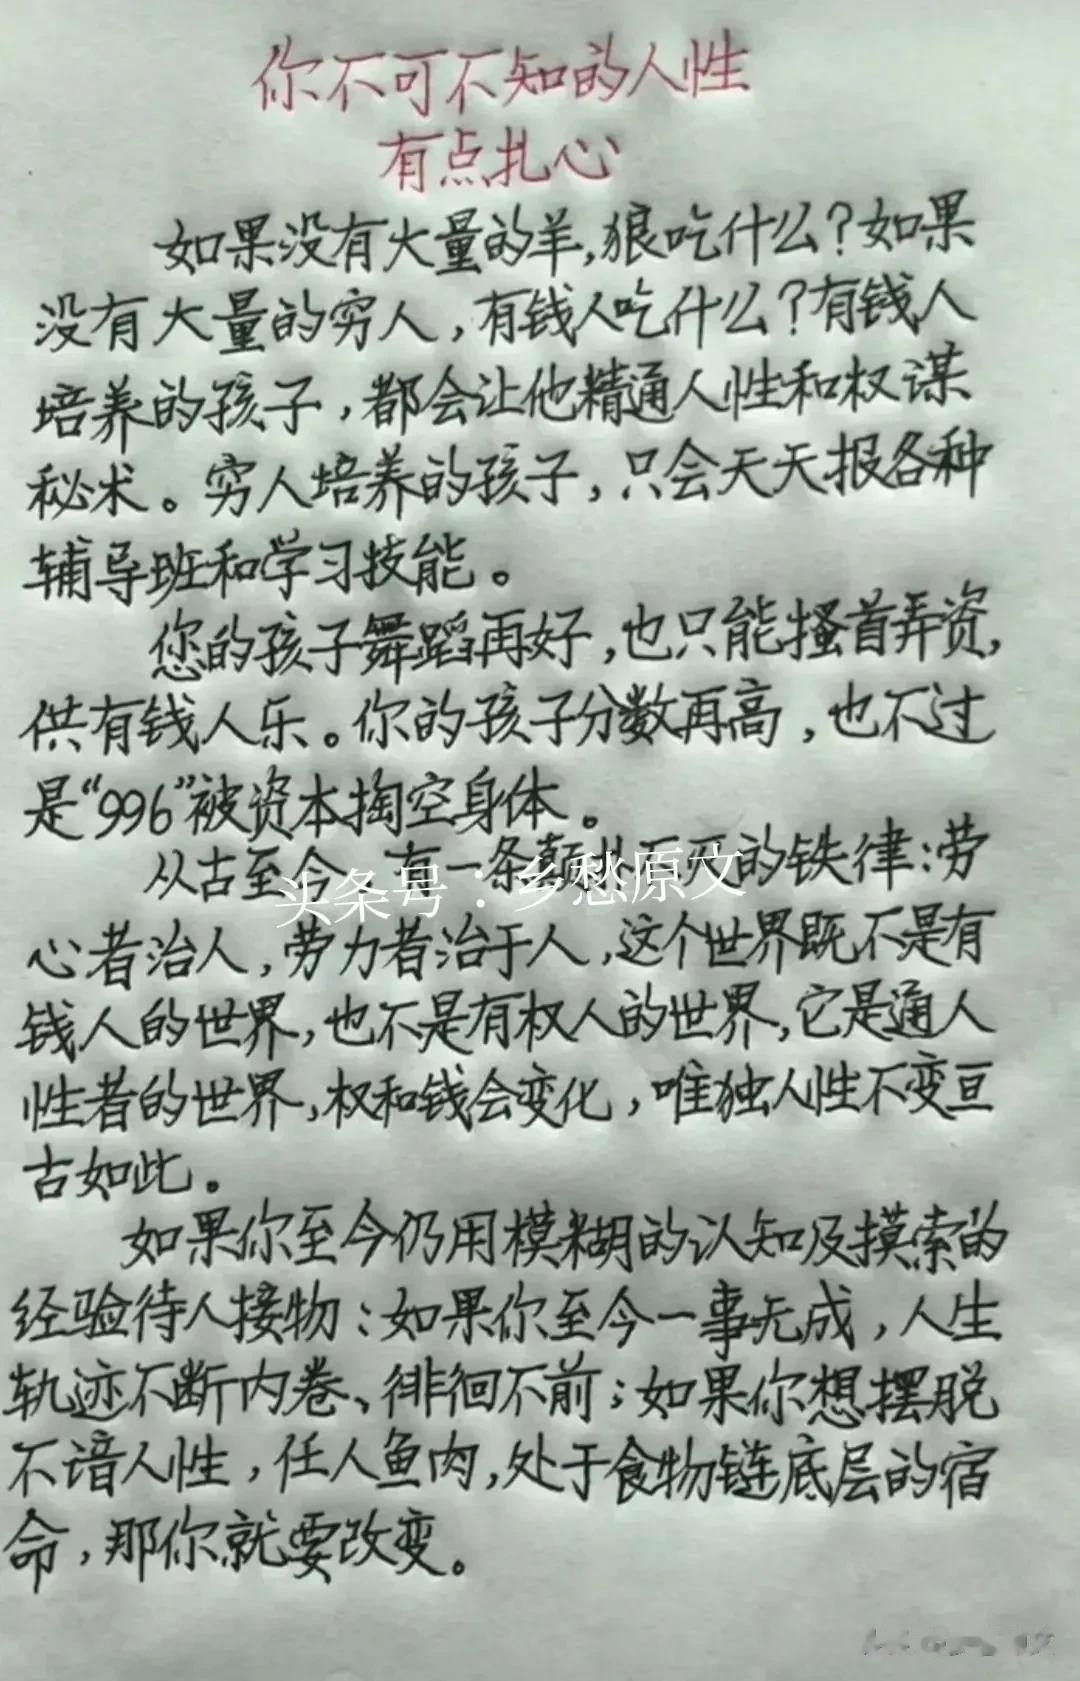 你不可不知的人性
有点扎心
如果没有大量的羊,狼吃什么?如果
没有大量的穷人,有钱人吃什么?有钱人
培养的孩子,都会让他精通人性和权谋
秘术。穷人培养的孩子,只会天天报各种
辅导班和学习技能。
您的孩子舞蹈再好,也只能搔首弄资,
供有钱人乐。你的孩子分数再高,也不过
是“996”被资本掏空身体。
从古至今,有一条颠扑不灭的铁律:劳
头条号:乡愁原文
心者治人,劳力者治于人,这个世界既不是有
钱人的世界,也不是有权人的世界,它是通人
性者的世界,权和钱会变化,唯独人性不变亘
古如此。
如果你至今仍用模糊的认知及摸索的
经验待人接物:如果你至今一事无成,人生
轨迹不断内卷、徘徊不前;如果你想摆脱
不谙人性,任人鱼肉,处于食物链底层的宿
命,那你就要改变。